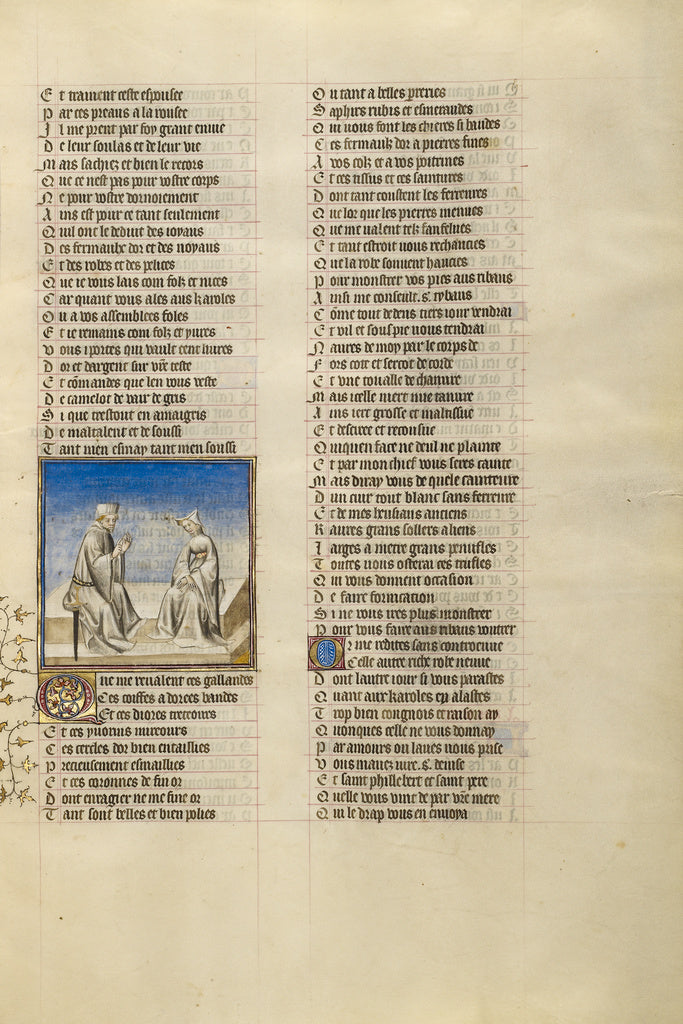 E t trament ceste espousee
P ar ces preaus a la rousee
I l me prent par foy grant enuie
D e leur soulas et de leur vie
M ais sachiez et bien le recors
Q ue ce nest pas pour vostre corps
N e pour vostre dornoiement
A ins est pour ce tant seulement
Q uil ont le deduit des ioyaus
D es fermaulx dor et des noyaus
E t des robes et des pelices
Q ue ie vous lais com folz et nices
C ar quant vous ales aus karoles
O u a vos assemblees foles
E t ie remains com folz et yures
V ous i portes qui vault cent liures
D or et dargent sur vr̄e teste
E t cōmandes que len vous veste
D e camelot de vair de gris
S i que trestout en amaigris
D e maltalent et de soussi
T ant men esmay tant men soussi
Q ue me reualent ces gallandes
Ces coiffes a dorees bandes
Et ces diores trecoirs
E t ces yuorins mirours
C es cercles dor bien entaillies
P recieusement esmaillies
E t ces coronnes de fin or
D ont enragier ne me fine or
T ant sont belles et bien polies
O u tant a belles preries
S aphirs rubis et esmeraudes
Q ui vous font les chieres si baudes
C es fermaulz dor a pierres fines
A vos colz et a vos poitrines
E t ces tissus et ces saintures
D ont tant coustent les ferreures
Q ue lor que les pierres menues
Q ue me valent telz fanfelues
E t tant estroit vous rechauciez
Q ue la robe souuent hauciez
P our monstrer vos pies aus ribaus
A insi me conseult .s. tybaus
C ōme tout dedens tiers iour vendrai
E t vil et souspie vous tendrai
N aures de moy par le corps de
F ors cote et sercot de corde
E t vne touaille de chanure
M ais icelle miert mie tanure
A ins iert grosse et mal tissue
E t desciree et recousue
Q ui quen face ne deul ne plainte
E t par mon chief vous seres cainte
M ais diray vous de quele cainteure
D un cuir tout blanc sans ferreure
E t de mes housiaus anciens
R aures grans sollers a liens
L arges a metre grans penufles
T outes vous osterai ces trufles
Q ui vous donnent occasion
D e faire fornicacion
S i ne vous ires plus monstrer
P our vous faire aus ribaus voutrer
O r me redites sans controuue
Celle autre riche robe neuue
D ont lautre iour si vous parastes
Q uant aux karoles en alastes
T rop bien cougnois et raison ay
Q uonques celle ne vous donnay
P ar amours ou laues vous prise
V ous maues iure .s. denise
E t saint phillebert et saint pere
Q uelle vous vint de par vr̄e mere
Q ui le drap vous en enuoya